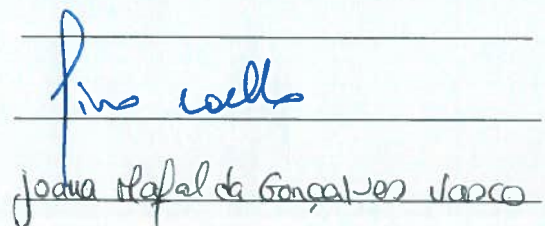 Pino Coelho
Joana Mafalda Gonçalves Vasco